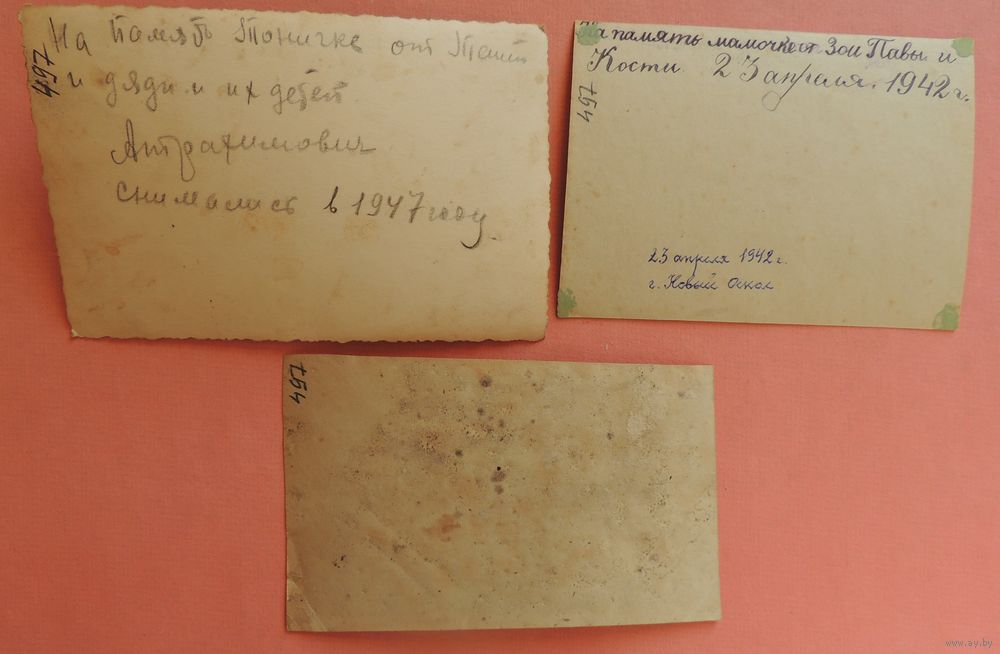 На память Тоничке от Тани
и дяди и их детей
Антрахимович
снимались в 1947 году.
497
На память мамочке от Зои Павы и
Кости 23 апреля. 1942 г.
497
23 апреля 1942 г.
г. Новый Оскол
497
www.ay.by